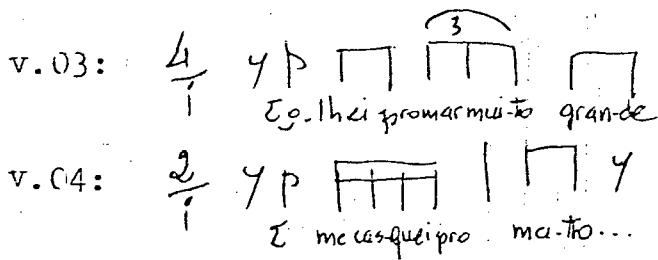 v.03: 4/1 3
E o-lhei pro mar mui-to gran-de
v.04: 2/1
E me cas-quei pro ma-to...